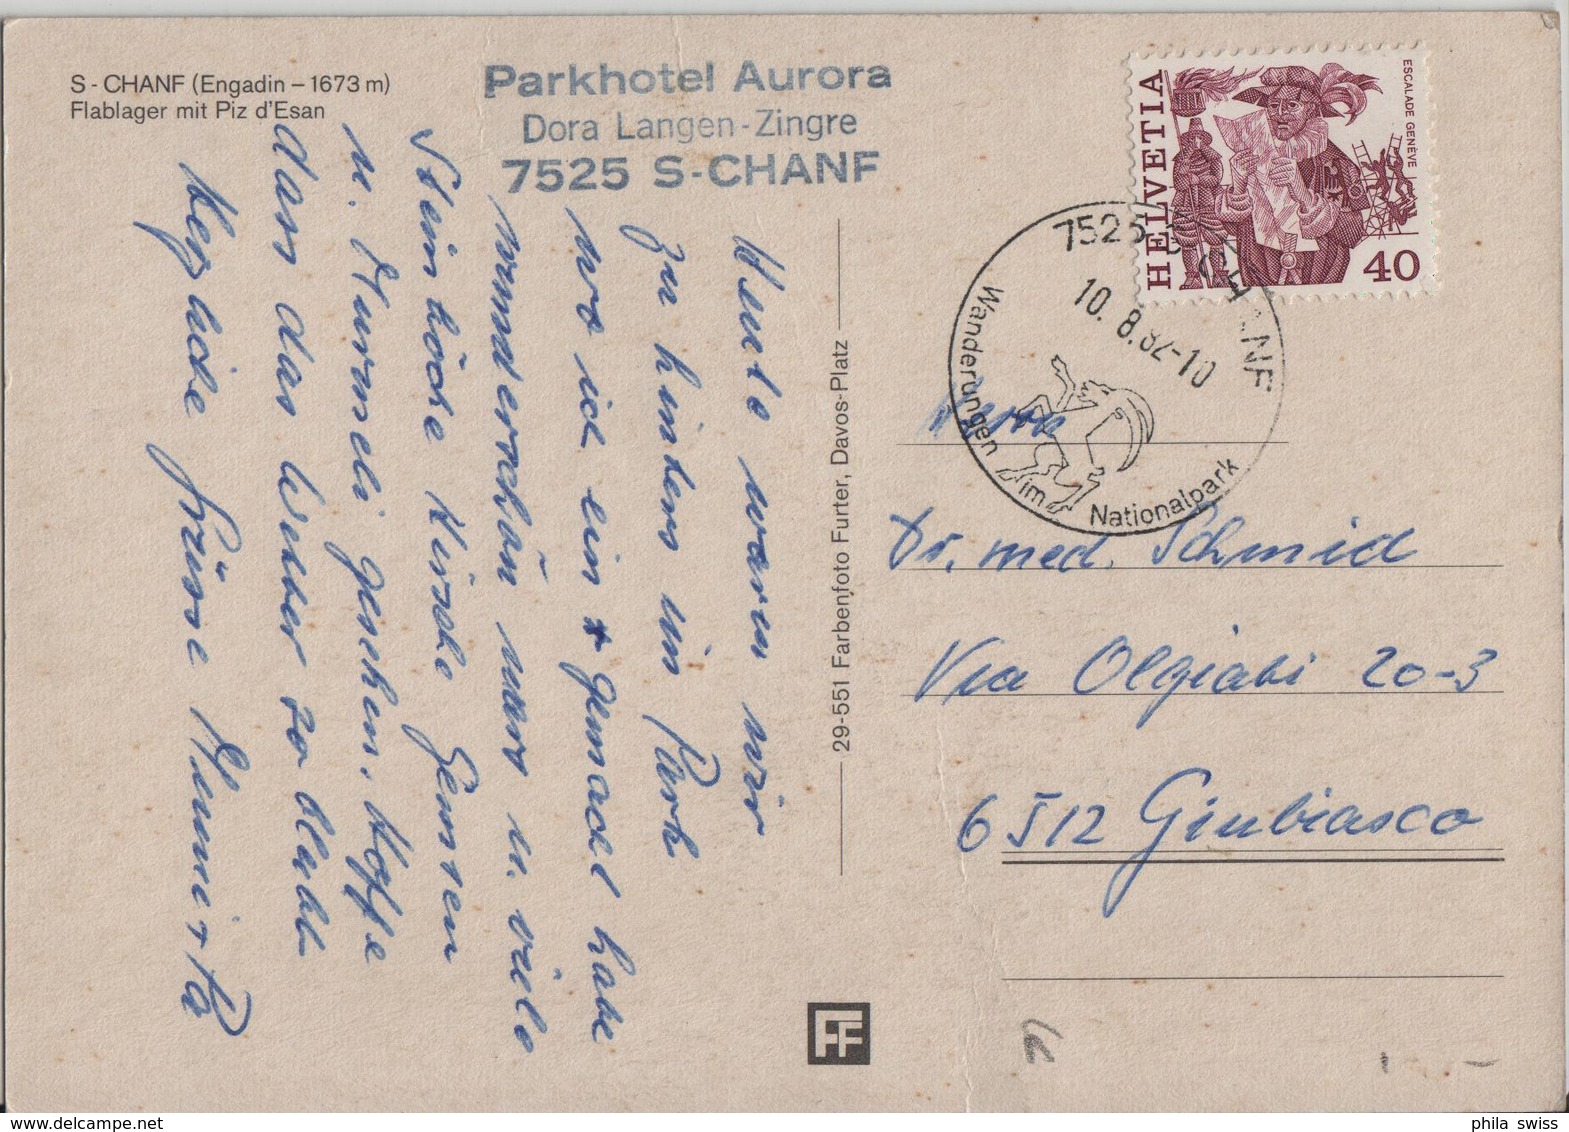 S - CHANF (Engadin – 1673 m)
Flablager mit Piz d'Esan
Parkhotel Aurora
Dora Langen-Zingre
7525 S-CHANF
HELVETIA
ESCALADE GENÈVE
40
7525 S-CHANF
10.8.82-10
Wanderungen im Nationalpark
Heute waren wir
zu hinters im Park
wo ich ein gemacht habe
wunderschön war u. viele
Steinböcke Hirsche Gemsen
u. Murmeli gesehen. Hoffe
dass das Wetter so bleibt
Herzliche Grüsse
29-551 Farbenfoto Furter, Davos-Platz
Herrn
Dr. med. Schmid
Via Olgiati 20-3
6512 Giubiasco
FF
phila swiss